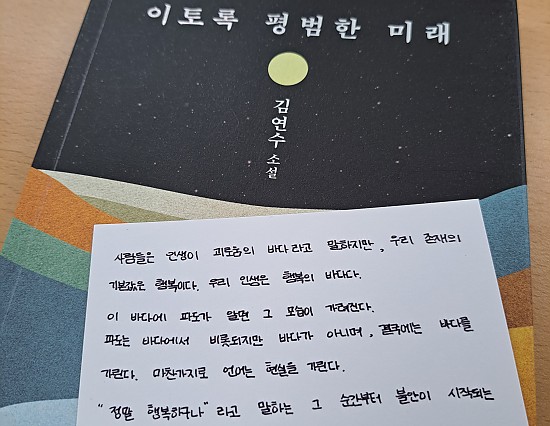 이토록 평범한 미래
김연수 소설
사람들은 인생이 괴로움의 바다라고 말하지만, 우리 존재의
기본값은 행복이다. 우리 인생은 행복의 바다다.
이 바다에 파도가 일면 그 모습이 가려진다.
파도는 바다에서 비롯되지만 바다가 아니며, 결국에는 바다를
가린다. 마찬가지로 언어는 현실을 가린다.
"정말 행복하구나"라고 말하는 그 순간부터 불안이 시작되는